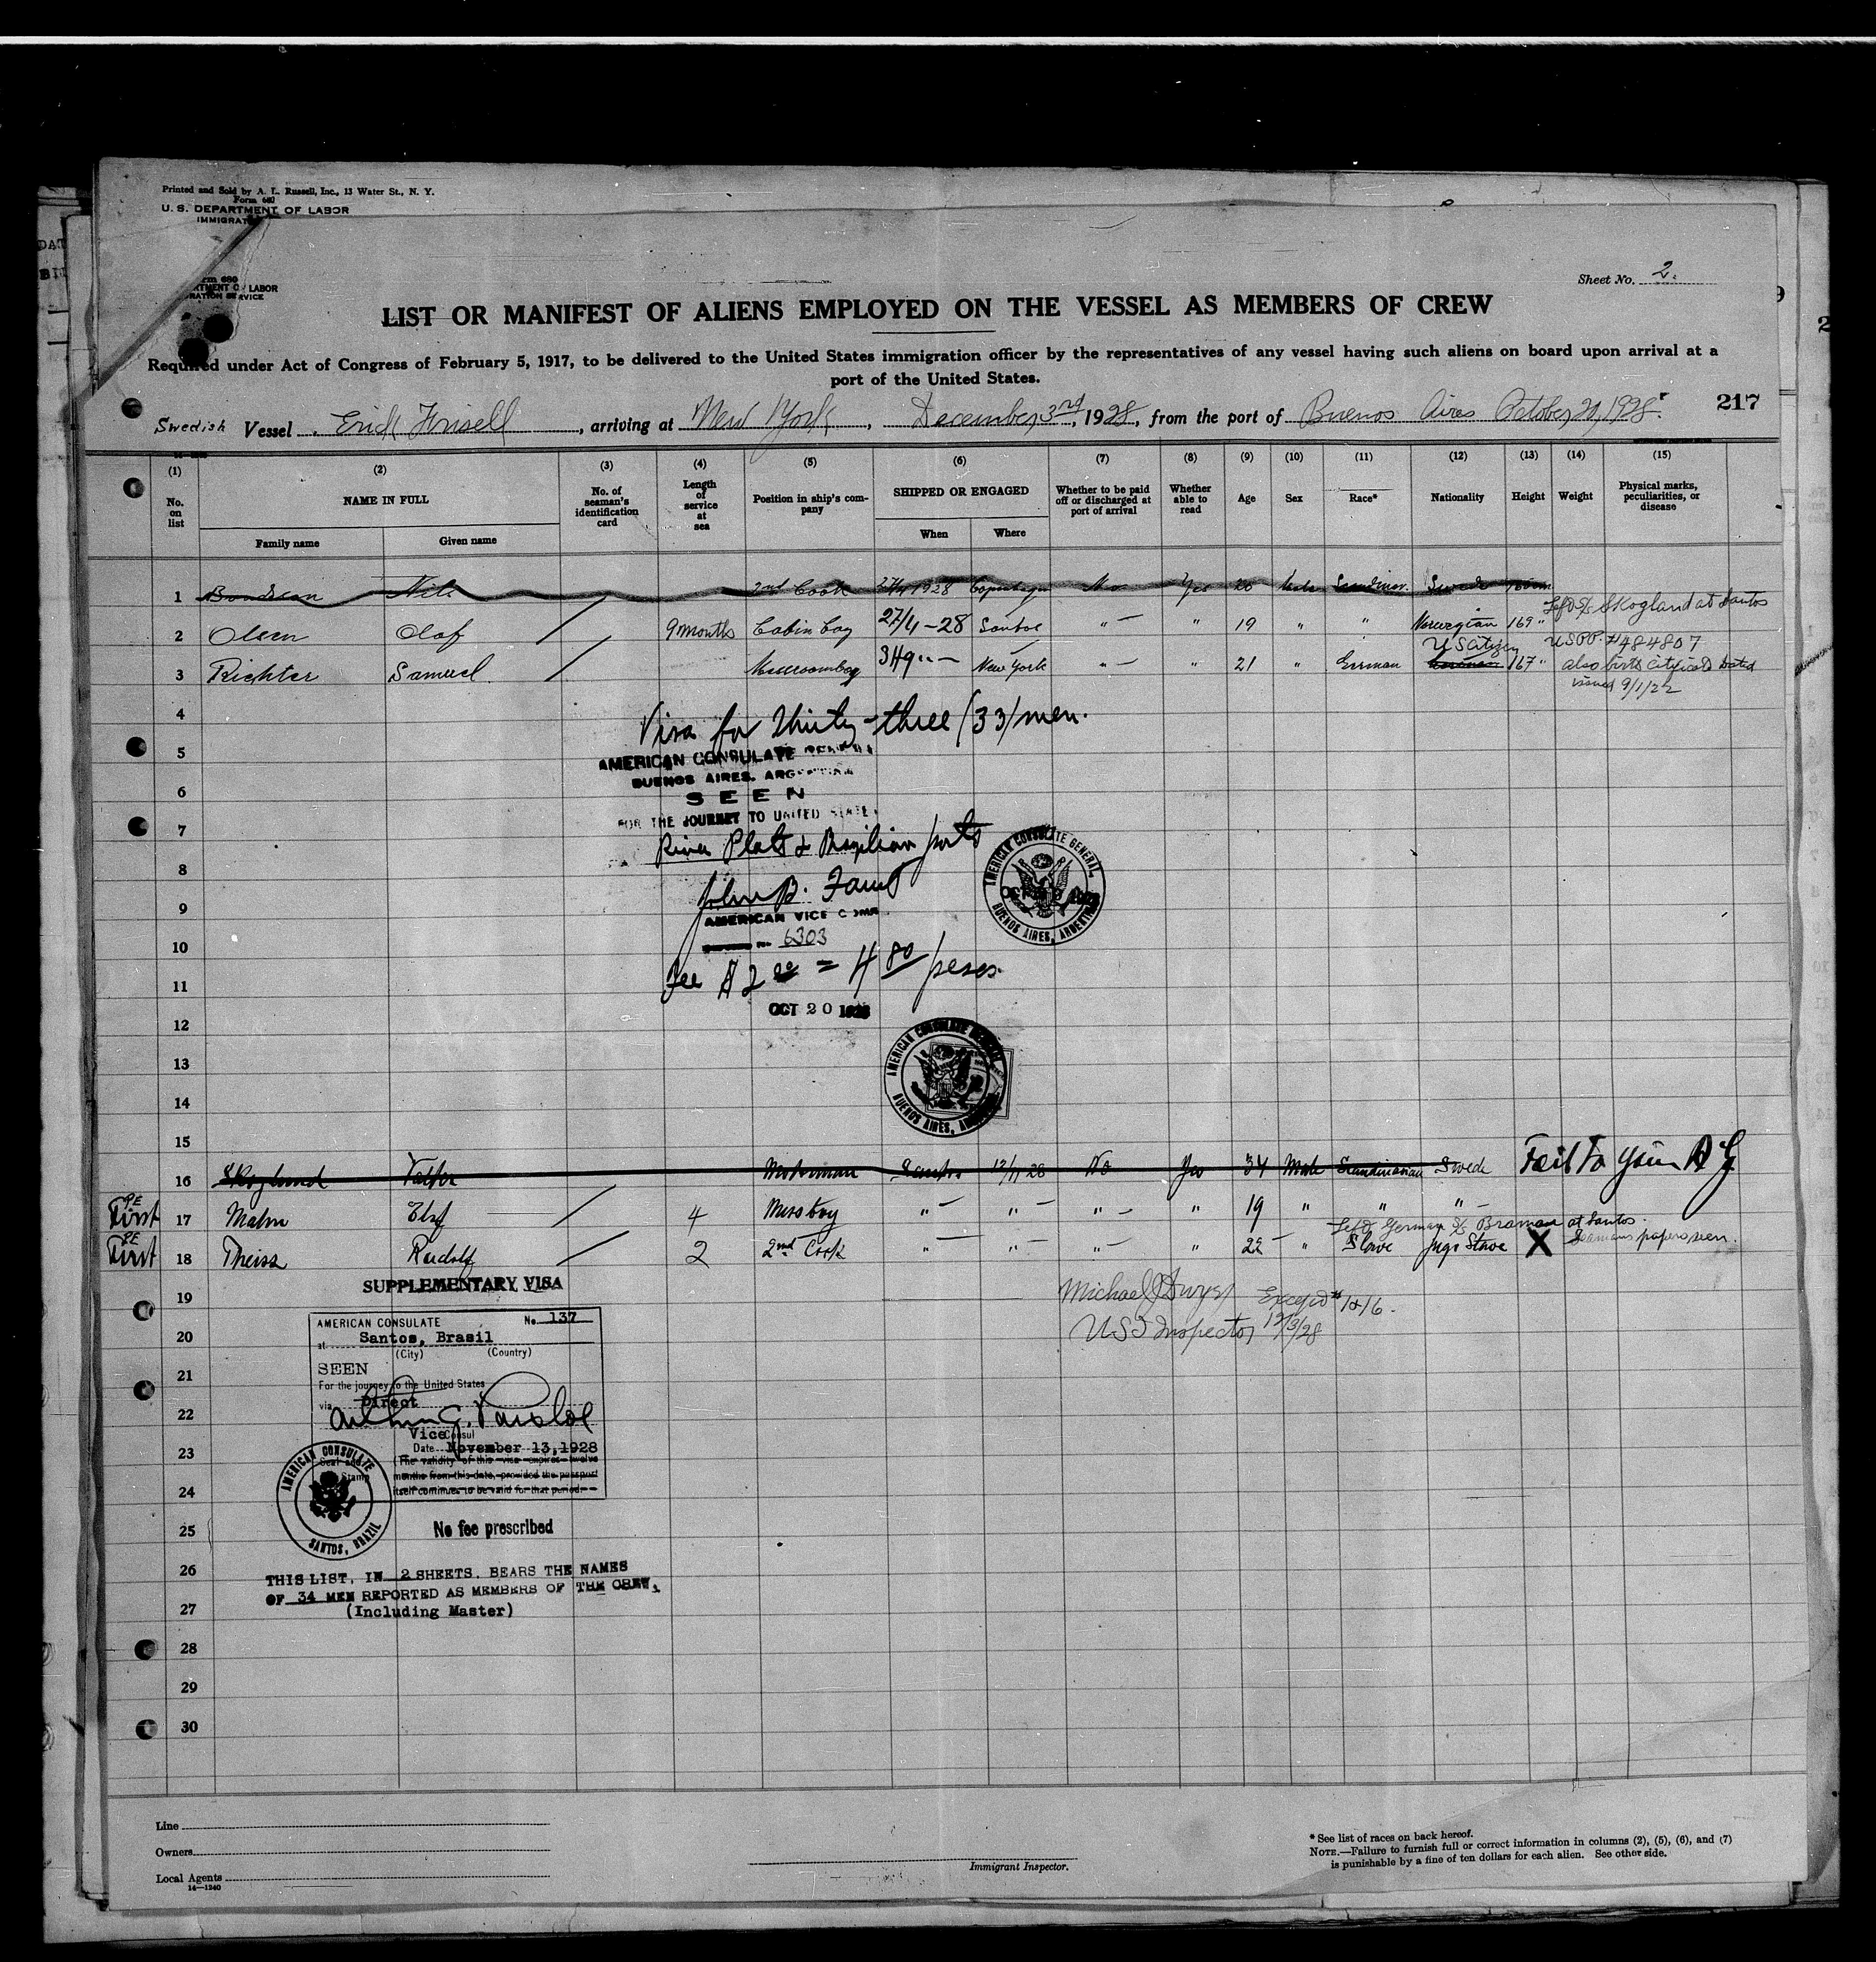 Printed and Sold by A. L. Russell, Inc., 13 Water St., N. Y.
Form 680
U. S. DEPARTMENT OF LABOR
IMMIGRAT
Sheet No. 2.
LIST OR MANIFEST OF ALIENS EMPLOYED ON THE VESSEL AS MEMBERS OF CREW
Required under Act of Congress of February 5, 1917, to be delivered to the United States immigration officer by the representatives of any vessel having such aliens on board upon arrival at a
port of the United States.
217
Swedish Vessel Erick Frisell, arriving at New York, December 3rd, 1928, from the port of Buenos Aires October 20, 1928.
(1) (2) (3) (4) (5) (6) (7) (8) (9) (10) (11) (12) (13) (14) (15)
No. on list
NAME IN FULL
Family name
Given name
No. of seaman's identification card
Length of service at sea
Position in ship's company
SHIPPED OR ENGAGED
When
Where
Whether to be paid off or discharged at port of arrival
Whether able to read
Age
Sex
Race*
Nationality
Height
Weight
Physical marks, peculiarities, or disease
1 Nils 2nd Cook 1928 Copenhagen No Yes 20 Male Scandinav. Swede
Left S/S Skogland at Santos
2 Olsen Olaf 9 months Cabin boy 27/4-28 " - " 19 " " Norwegian 169 "
US Citizen USPP. #484807
3 Richter Samuel Messroomboy New York " - " 21 " German 167 " also birth
issued 9/1/22
4
Visa for Thirty-three (33) men.
AMERICAN CONSULATE GENERAL
5
BUENOS AIRES, ARGENTINA
6
SEEN
FOR THE JOURNEY TO UNITED STATES
7
River Plate & Brazilian ports
8
AMERICAN CONSULATE GENERAL, BUENOS AIRES, ARGENTINA
John B. Faust
9
AMERICAN VICE CONSUL
10
No. 6303
11
Fee $2.00 = 4.80 pesos
OCT 20 1928
12
13
AMERICAN CONSULATE GENERAL BUENOS AIRES, ARGENTINA
14
15
16 Skoglund Valter Motorman Santos 12/11 28 No Yes 34 Male Scandinavian Swede Fail To Join
PE
First 17 Malm Elof 4 Messboy " - " - " - " 19 " " " -
Left German S/S Braman at Santos.
PE
First 18 Theiss Rudolf 2 2nd Cook " - " - " - " 22 - " Slave Jugo Slave X Seamans papers seen.
SUPPLEMENTARY VISA
19
Michael J Dwyer Except # 1 & 16.
AMERICAN CONSULATE No. 137
20
US I Inspector 12/3/28
at Santos, Brasil
(City) (Country)
21
SEEN
For the journey to the United States
via Direct
22
Vice Consul
23
Date November 13, 1928
(The validity of this visa expires twelve
months from this date, provided the passport
itself continues to be valid for that period.
24
Seal and Stamp
AMERICAN CONSULATE SANTOS, BRAZIL
25
No fee prescribed
26
THIS LIST, IN 2 SHEETS. BEARS THE NAMES
OF 34 MEN REPORTED AS MEMBERS OF THE CREW.
27
(Including Master)
28
29
30
Line
Owners
Local Agents
14—1240
Immigrant Inspector.
* See list of races on back hereof.
NOTE.—Failure to furnish full or correct information in columns (2), (5), (6), and (7)
is punishable by a fine of ten dollars for each alien. See other side.